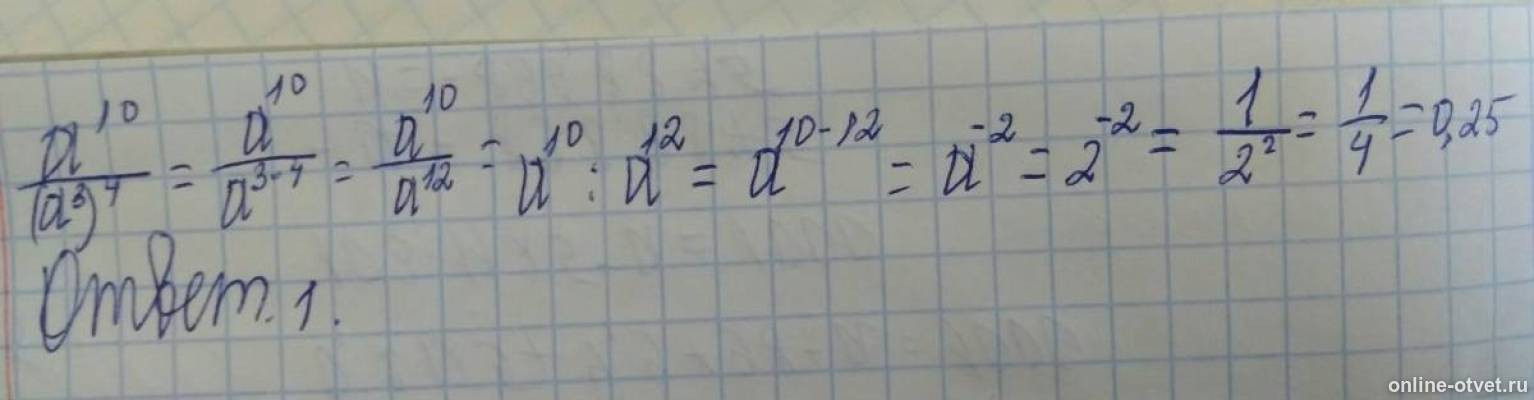 a¹⁰/(a³)⁴ = a¹⁰/a³·⁴ = a¹⁰/a¹² = a¹⁰ : a¹² = a¹⁰⁻¹² = a⁻² = 2⁻² = 1/2² = 1/4 = 0,25
Ответ. 1.
online-otvet.ru